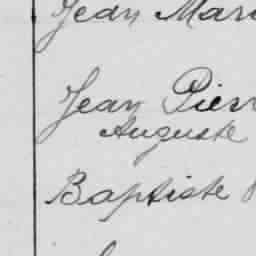 Jean Mari
Jean Pierr
Auguste
Baptiste